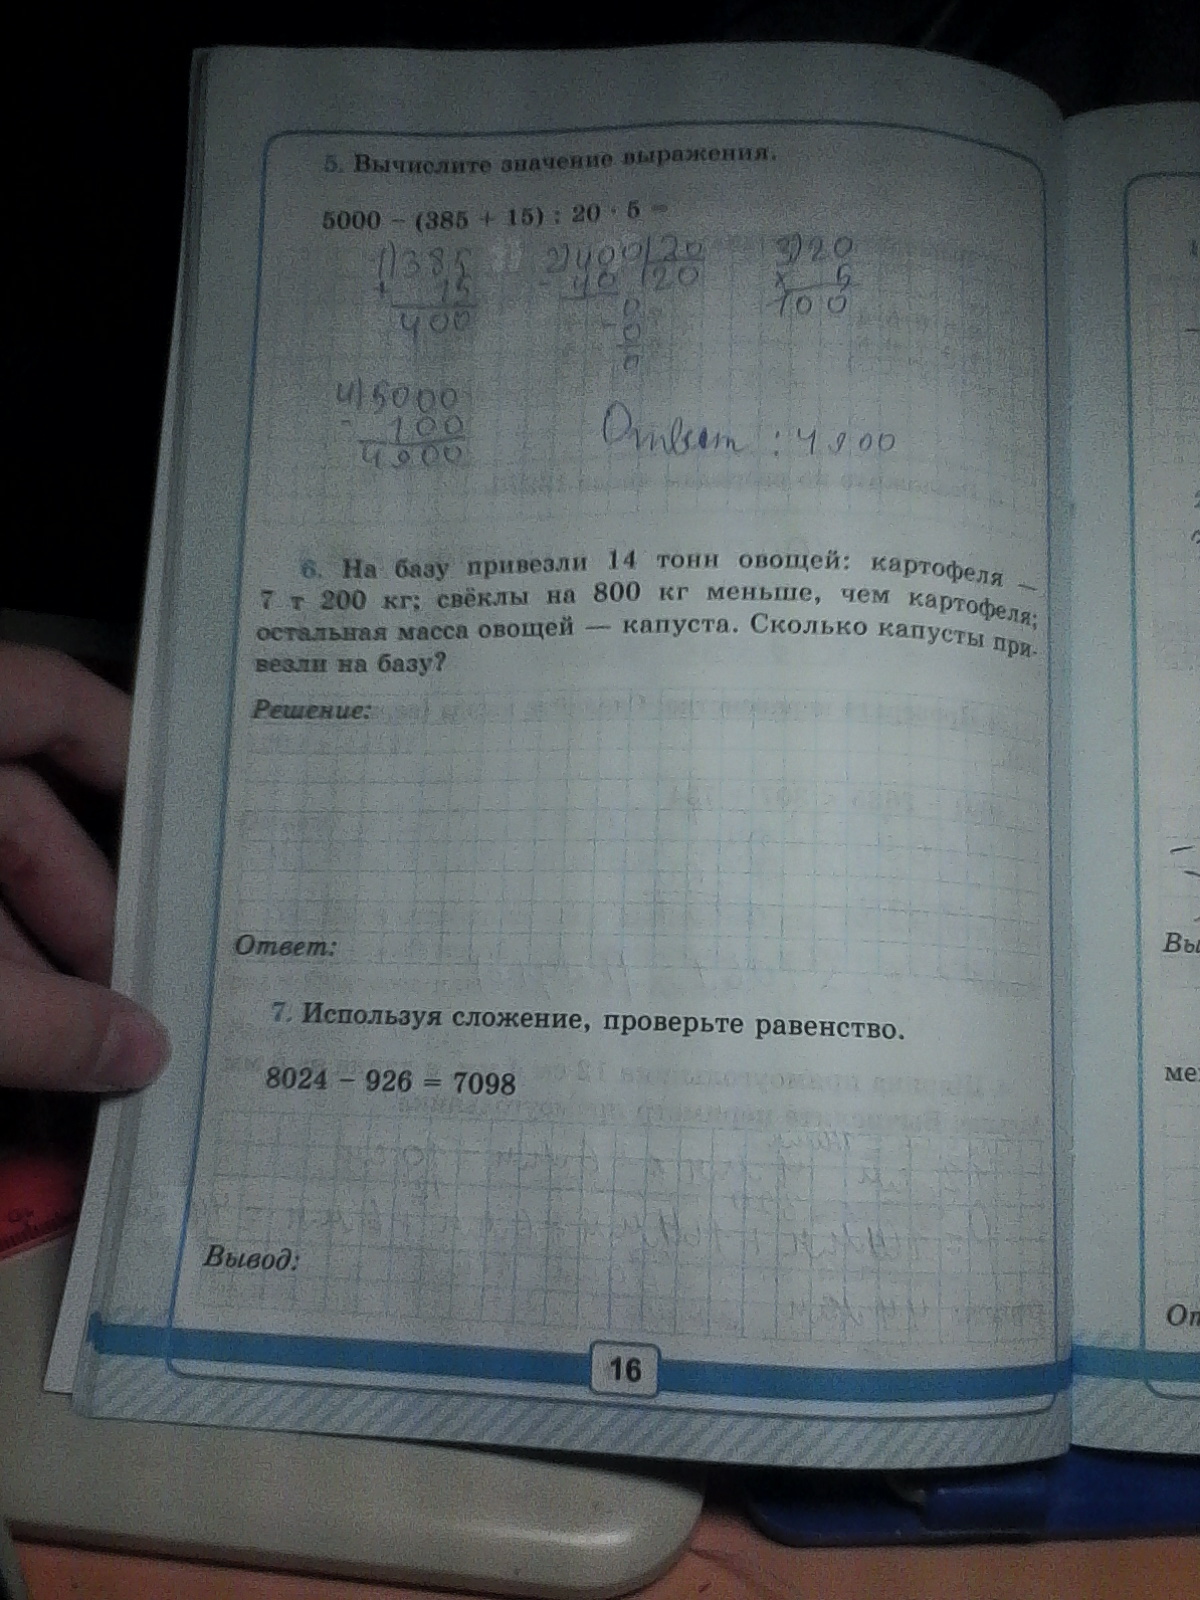 5. Вычислите значение выражения.
5000 − (385 + 15) : 20 · 5 =
1) 385 2) 400 | 20 3) 20
+ 15 − 40 | 20 × 5
400 0 100
− 0
0
4) 5000
− 100
4900
Ответ : 4900
6. На базу привезли 14 тонн овощей: картофеля —
7 т 200 кг; свёклы на 800 кг меньше, чем картофеля;
остальная масса овощей — капуста. Сколько капусты при-
везли на базу?
Решение:
Ответ:
7. Используя сложение, проверьте равенство.
8024 − 926 = 7098
Вывод:
16
Вы
ме
От